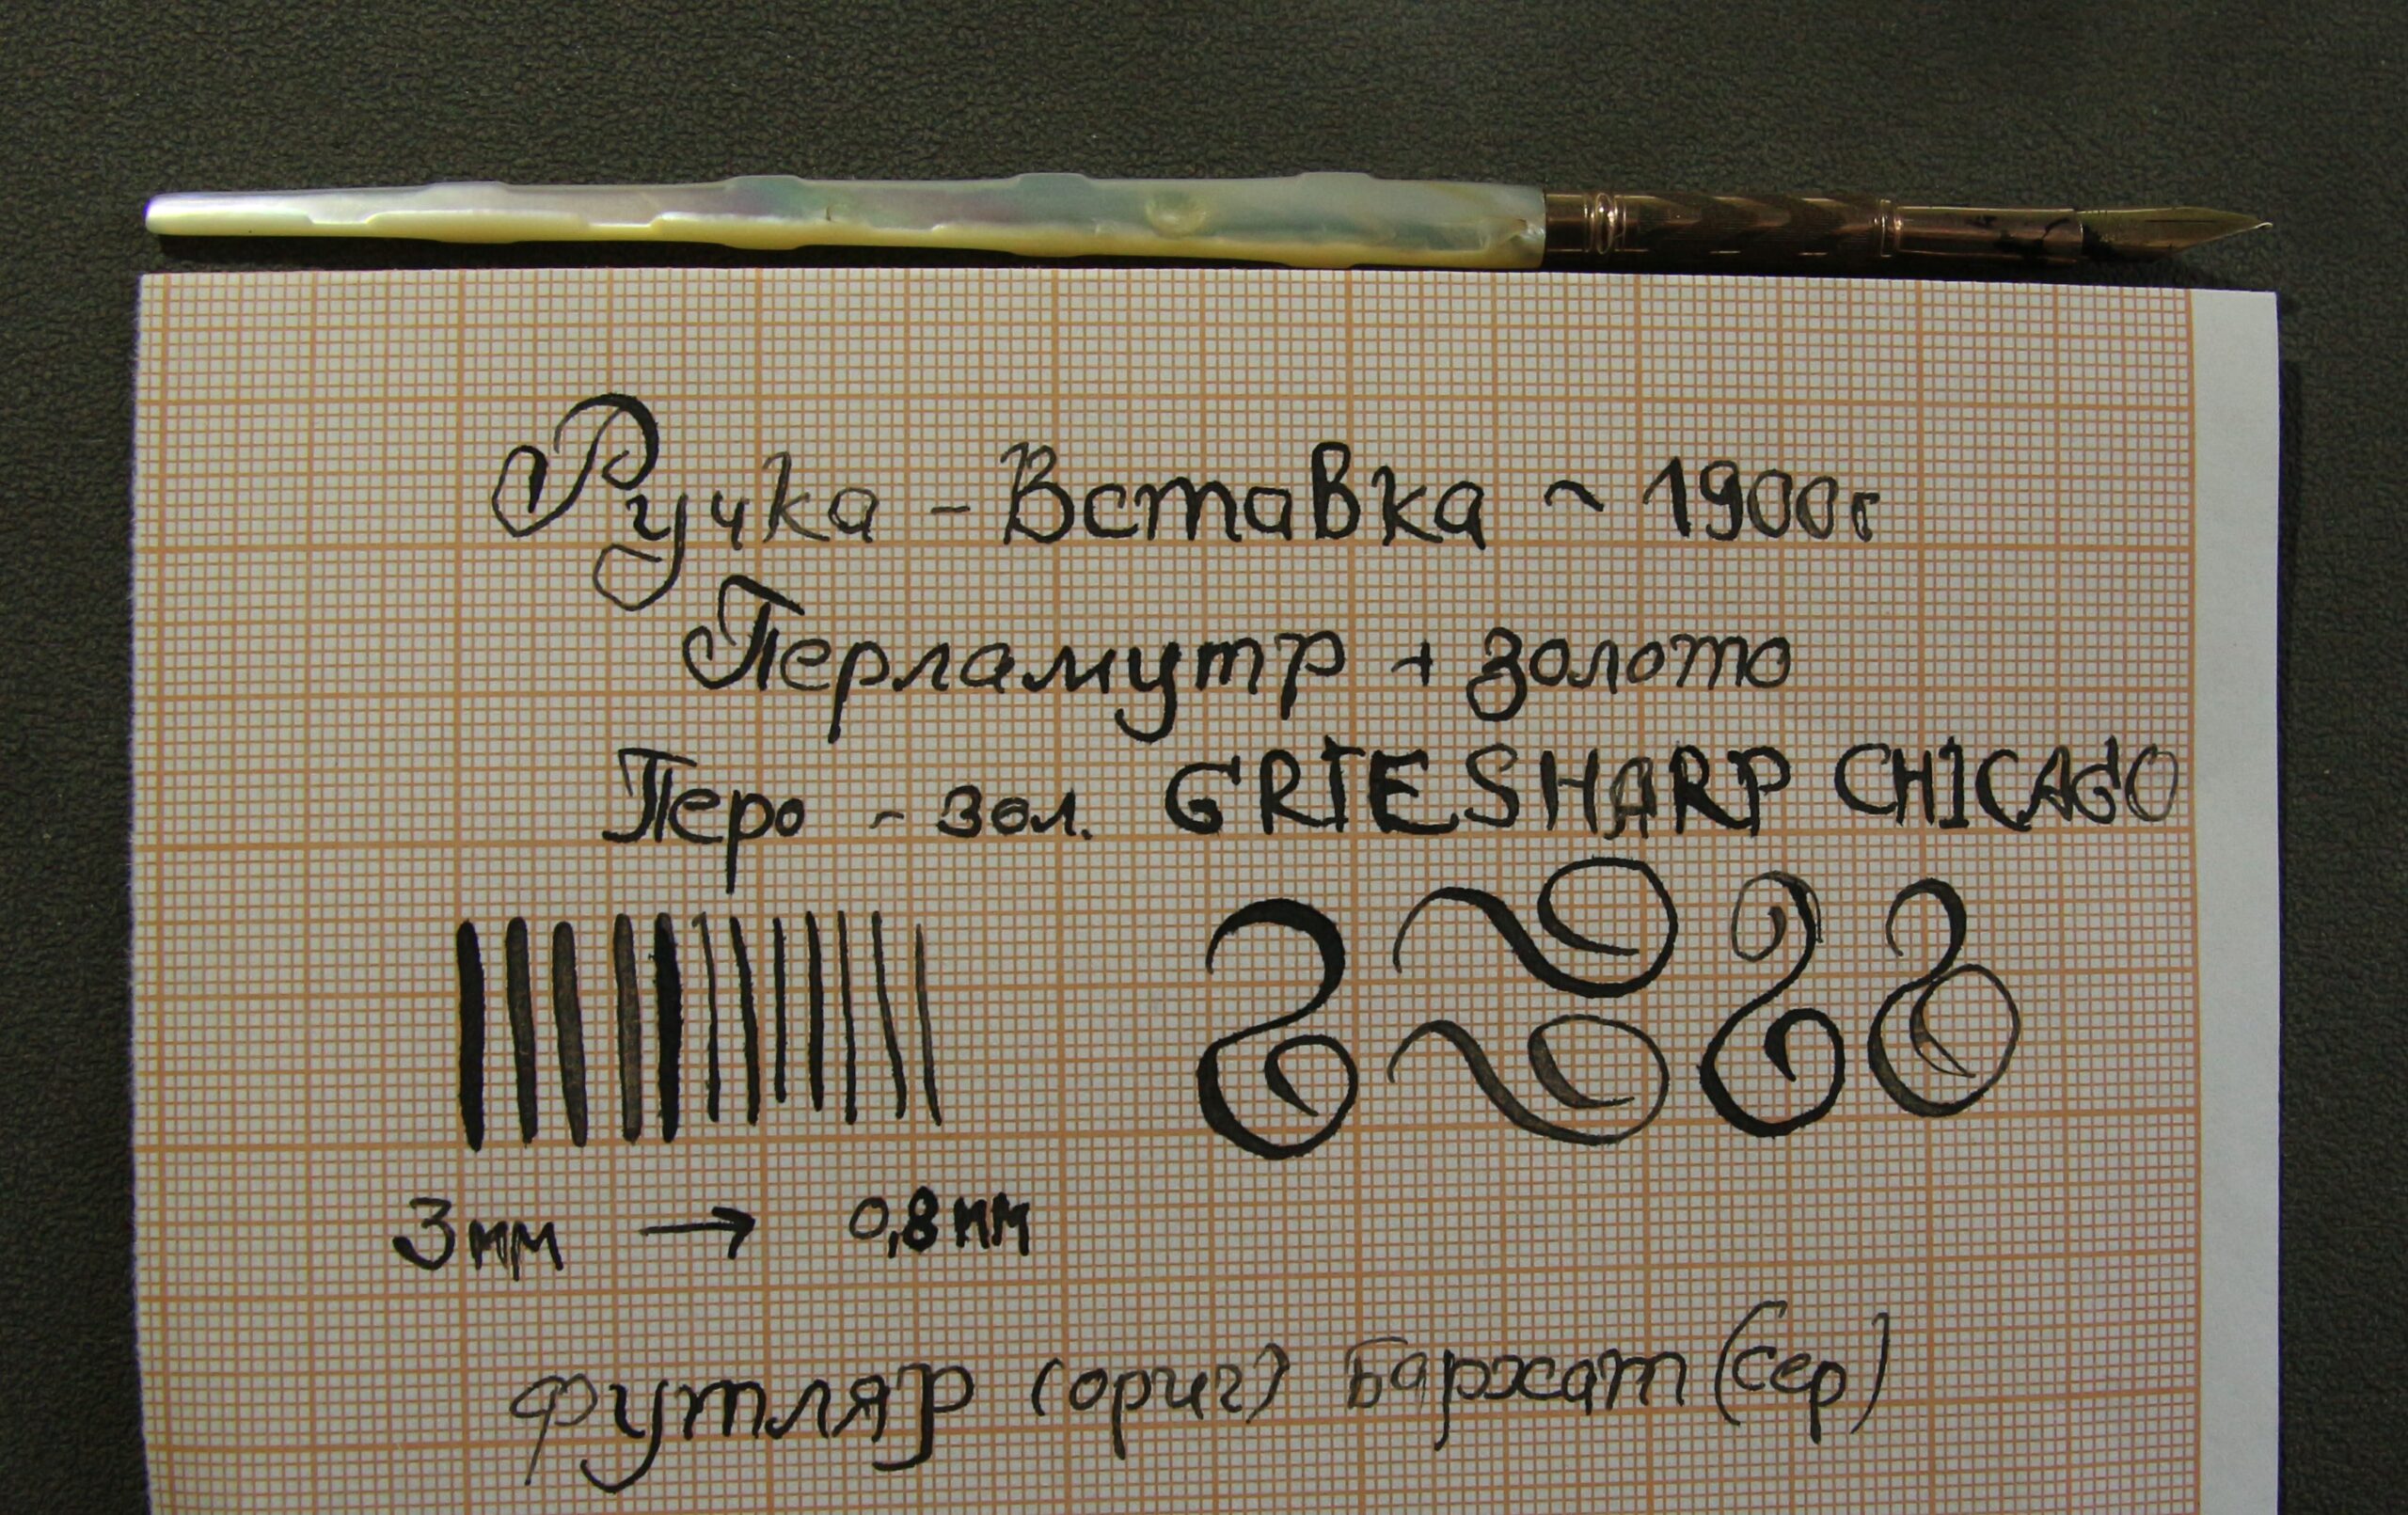 Ручка - Вставка ~ 1900г
Перламутр + золото
Перо - зол. GRIESHARP CHICAGO
3мм → 0,8мм
футляр (ориг) Бархат (сер)